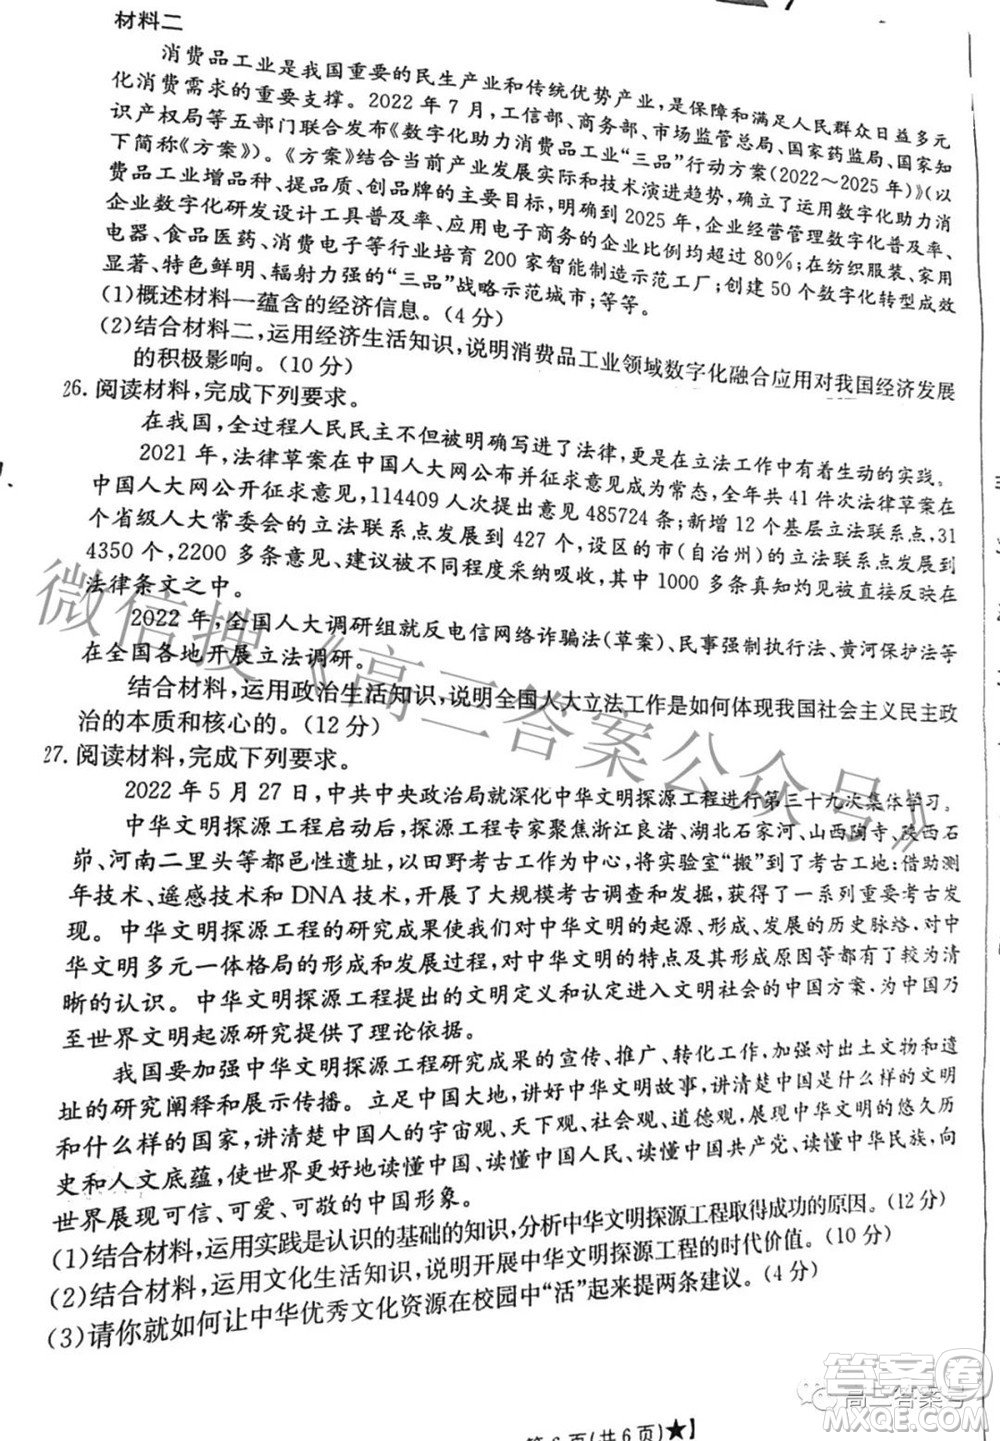 材料二
消费品工业是我国重要的民生产业和传统优势产业，是保障和满足人民群众日益多元
化消费需求的重要支撑。2022年7月，工信部、商务部、市场监管总局、国家药监局、国家知
识产权局等五部门联合发布《数字化助力消费品工业“三品”行动方案（2022～2025年）》（以
下简称《方案》）。《方案》结合当前产业发展实际和技术演进趋势，确立了运用数字化助力消
费品工业增品种、提品质、创品牌的主要目标，明确到2025年，企业经营管理数字化普及率、
企业数字化研发设计工具普及率、应用电子商务的企业比例均超过80％；在纺织服装、家用
电器、食品医药、消费电子等行业培育200家智能制造示范工厂；创建50个数字化转型成效
显著、特色鲜明、辐射力强的“三品”战略示范城市；等等。
(1)概述材料一蕴含的经济信息。（4分）
(2)结合材料二，运用经济生活知识，说明消费品工业领域数字化融合应用对我国经济发展
的积极影响。（10分）
26.阅读材料，完成下列要求。
在我国，全过程人民民主不但被明确写进了法律，更是在立法工作中有着生动的实践。
2021年，法律草案在中国人大网公布并征求意见成为常态，全年共41件次法律草案在
中国人大网公开征求意见，114409人次提出意见485724条；新增12个基层立法联系点，31
个省级人大常委会的立法联系点发展到427个，设区的市（自治州）的立法联系点发展到
4350个，2200多条意见、建议被不同程度采纳吸收，其中1000多条真知灼见被直接反映在
法律条文之中。
2022年，全国人大调研组就反电信网络诈骗法（草案）、民事强制执行法、黄河保护法等
在全国各地开展立法调研。
结合材料，运用政治生活知识，说明全国人大立法工作是如何体现我国社会主义民主政
治的本质和核心的。（12分）
27.阅读材料，完成下列要求。
2022年5月27日，中共中央政治局就深化中华文明探源工程进行第三十九次集体学习。
中华文明探源工程启动后，探源工程专家聚焦浙江良渚、湖北石家河、山西陶寺、陕西石
峁、河南二里头等都邑性遗址，以田野考古工作为中心，将实验室“搬”到了考古工地；借助测
年技术、遥感技术和DNA技术，开展了大规模考古调查和发掘，获得了一系列重要考古发
现。中华文明探源工程的研究成果使我们对中华文明的起源、形成、发展的历史脉络，对中
华文明多元一体格局的形成和发展过程，对中华文明的特点及其形成原因等有了较为清
晰的认识。中华文明探源工程提出的文明定义和认定进入文明社会的中国方案，为中国乃
至世界文明起源研究提供了理论依据。
我国要加强中华文明探源工程研究成果的宣传、推广、转化工作，加强对出土文物和遗
址的研究阐释和展示传播。立足中国大地，讲好中华文明故事，讲清楚中国是什么样的文明
和什么样的国家，讲清楚中国人的宇宙观、天下观、社会观、道德观，展现中华文明的悠久历
史和人文底蕴，使世界更好地读懂中国、读懂中国人民、读懂中国共产党、读懂中华民族，向
世界展现可信、可爱、可敬的中国形象。
(1)结合材料，运用实践是认识的基础的知识，分析中华文明探源工程取得成功的原因。（12分）
(2)结合材料，运用文化生活知识，说明开展中华文明探源工程的时代价值。（10分）
(3)请你就如何让中华优秀文化资源在校园中“活”起来提两条建议。（4分）
页（共6页）★】
微信搜《高三答案公众号》
高三答案号
答案圈